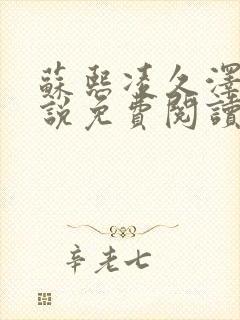 蘇熙凌久澤
說免費閱讀
辛老七